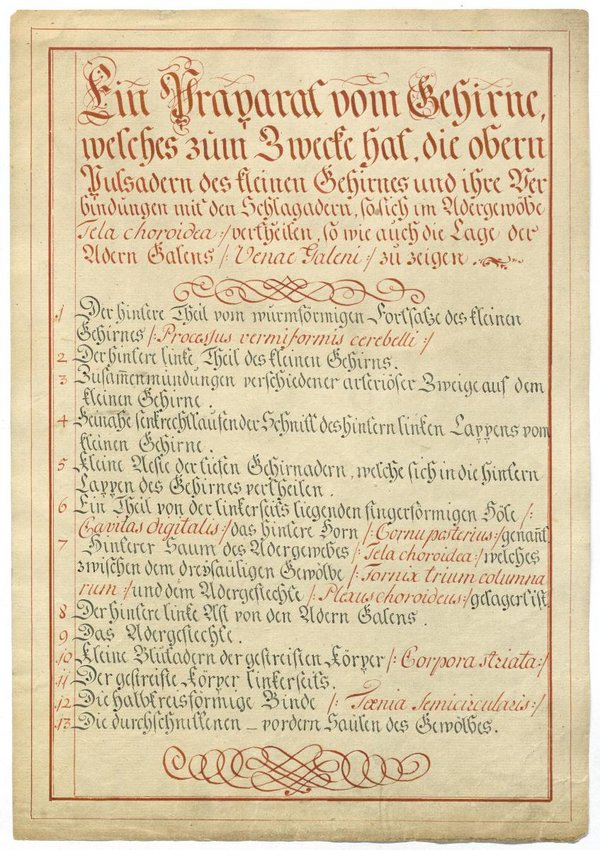 Ein Präparat vom Gehirne,
welches zum Zwecke hat, die obern
Pulsadern des kleinen Gehirnes und ihre Ver
bindungen mit den Schlagadern, so sich im Adergewöbe
Tela choroidea :/ vertheilen, so wie auch die Lage der
Adern Galens /: Venae Galeni :/ zu zeigen
1 Der hintere Theil vom wurmförmigen Fortsatze des kleinen
Gehirnes /: Processus vermiformis cerebelli :/
2 Der hintere linke Theil des kleinen Gehirns.
3 Zusam̅enmündungen verschiedener arteriöser Zweige auf dem
kleinen Gehirne.
4 Beinahe senkrechtlaufender Schnitt des hintern linken Lappens vom
kleinen Gehirne.
5 Kleine Aeste der tiefen Gehirnadern, welche sich in die hintern
Lappen des Gehirnes vertheilen.
6 Ein Theil von der linkerseits liegenden fingerförmigen Höle /:
Cavitas digitalis :/ das hintere Horn /: Cornu posterius :/ genannt.
7 Hinterer Saum des Adergewebes /: Tela choroidea :/ welches
zwischen dem dreysäuligen Gewölbe /: Fornix trium columna
rum :/ und dem Adergeflechte /: Plexus choroideus :/ gelagert ist.
8 Der hintere linke Ast von den Adern Galens.
9 Das Adergeflechte.
10 Kleine Blutadern der gestreiften Körper /: Corpora striata :/
11 Der gestreifte Körper linkerseits.
12 Die halbkreisförmige Binde /: Tænia semicircularis :/
13 Die durchschnittenen – vordern Säulen des Gewölbes.